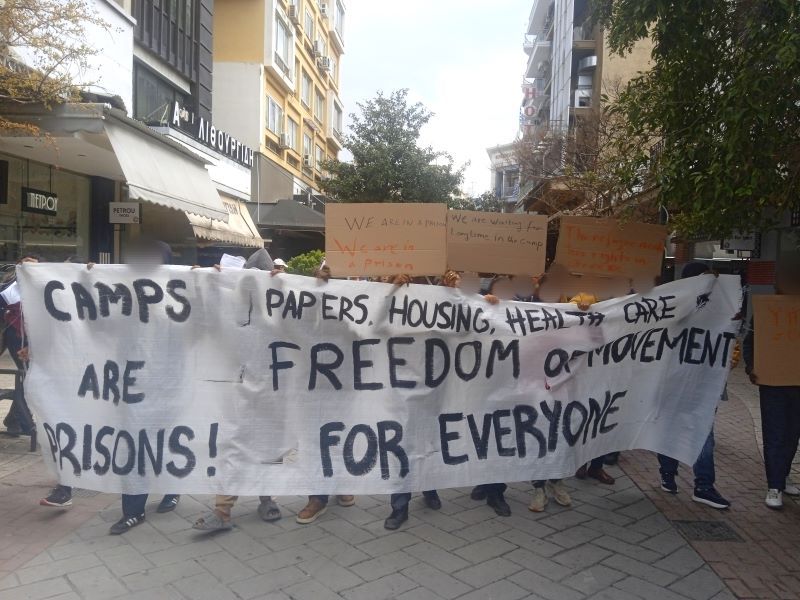 ΛΙΘΟΥΡΓΙΔΗ
ΠΕΤΡΟΥ
PETROU
HOT
WE ARE IN A PRISON
We are in
a prison
We are waiting for
Longtime in the camp
The refugee need
CAMPS
ARE
PRISONS!
PAPERS, HOUSING, HEALTH CARE
FREEDOM OF MOVEMENT
FOR EVERYONE